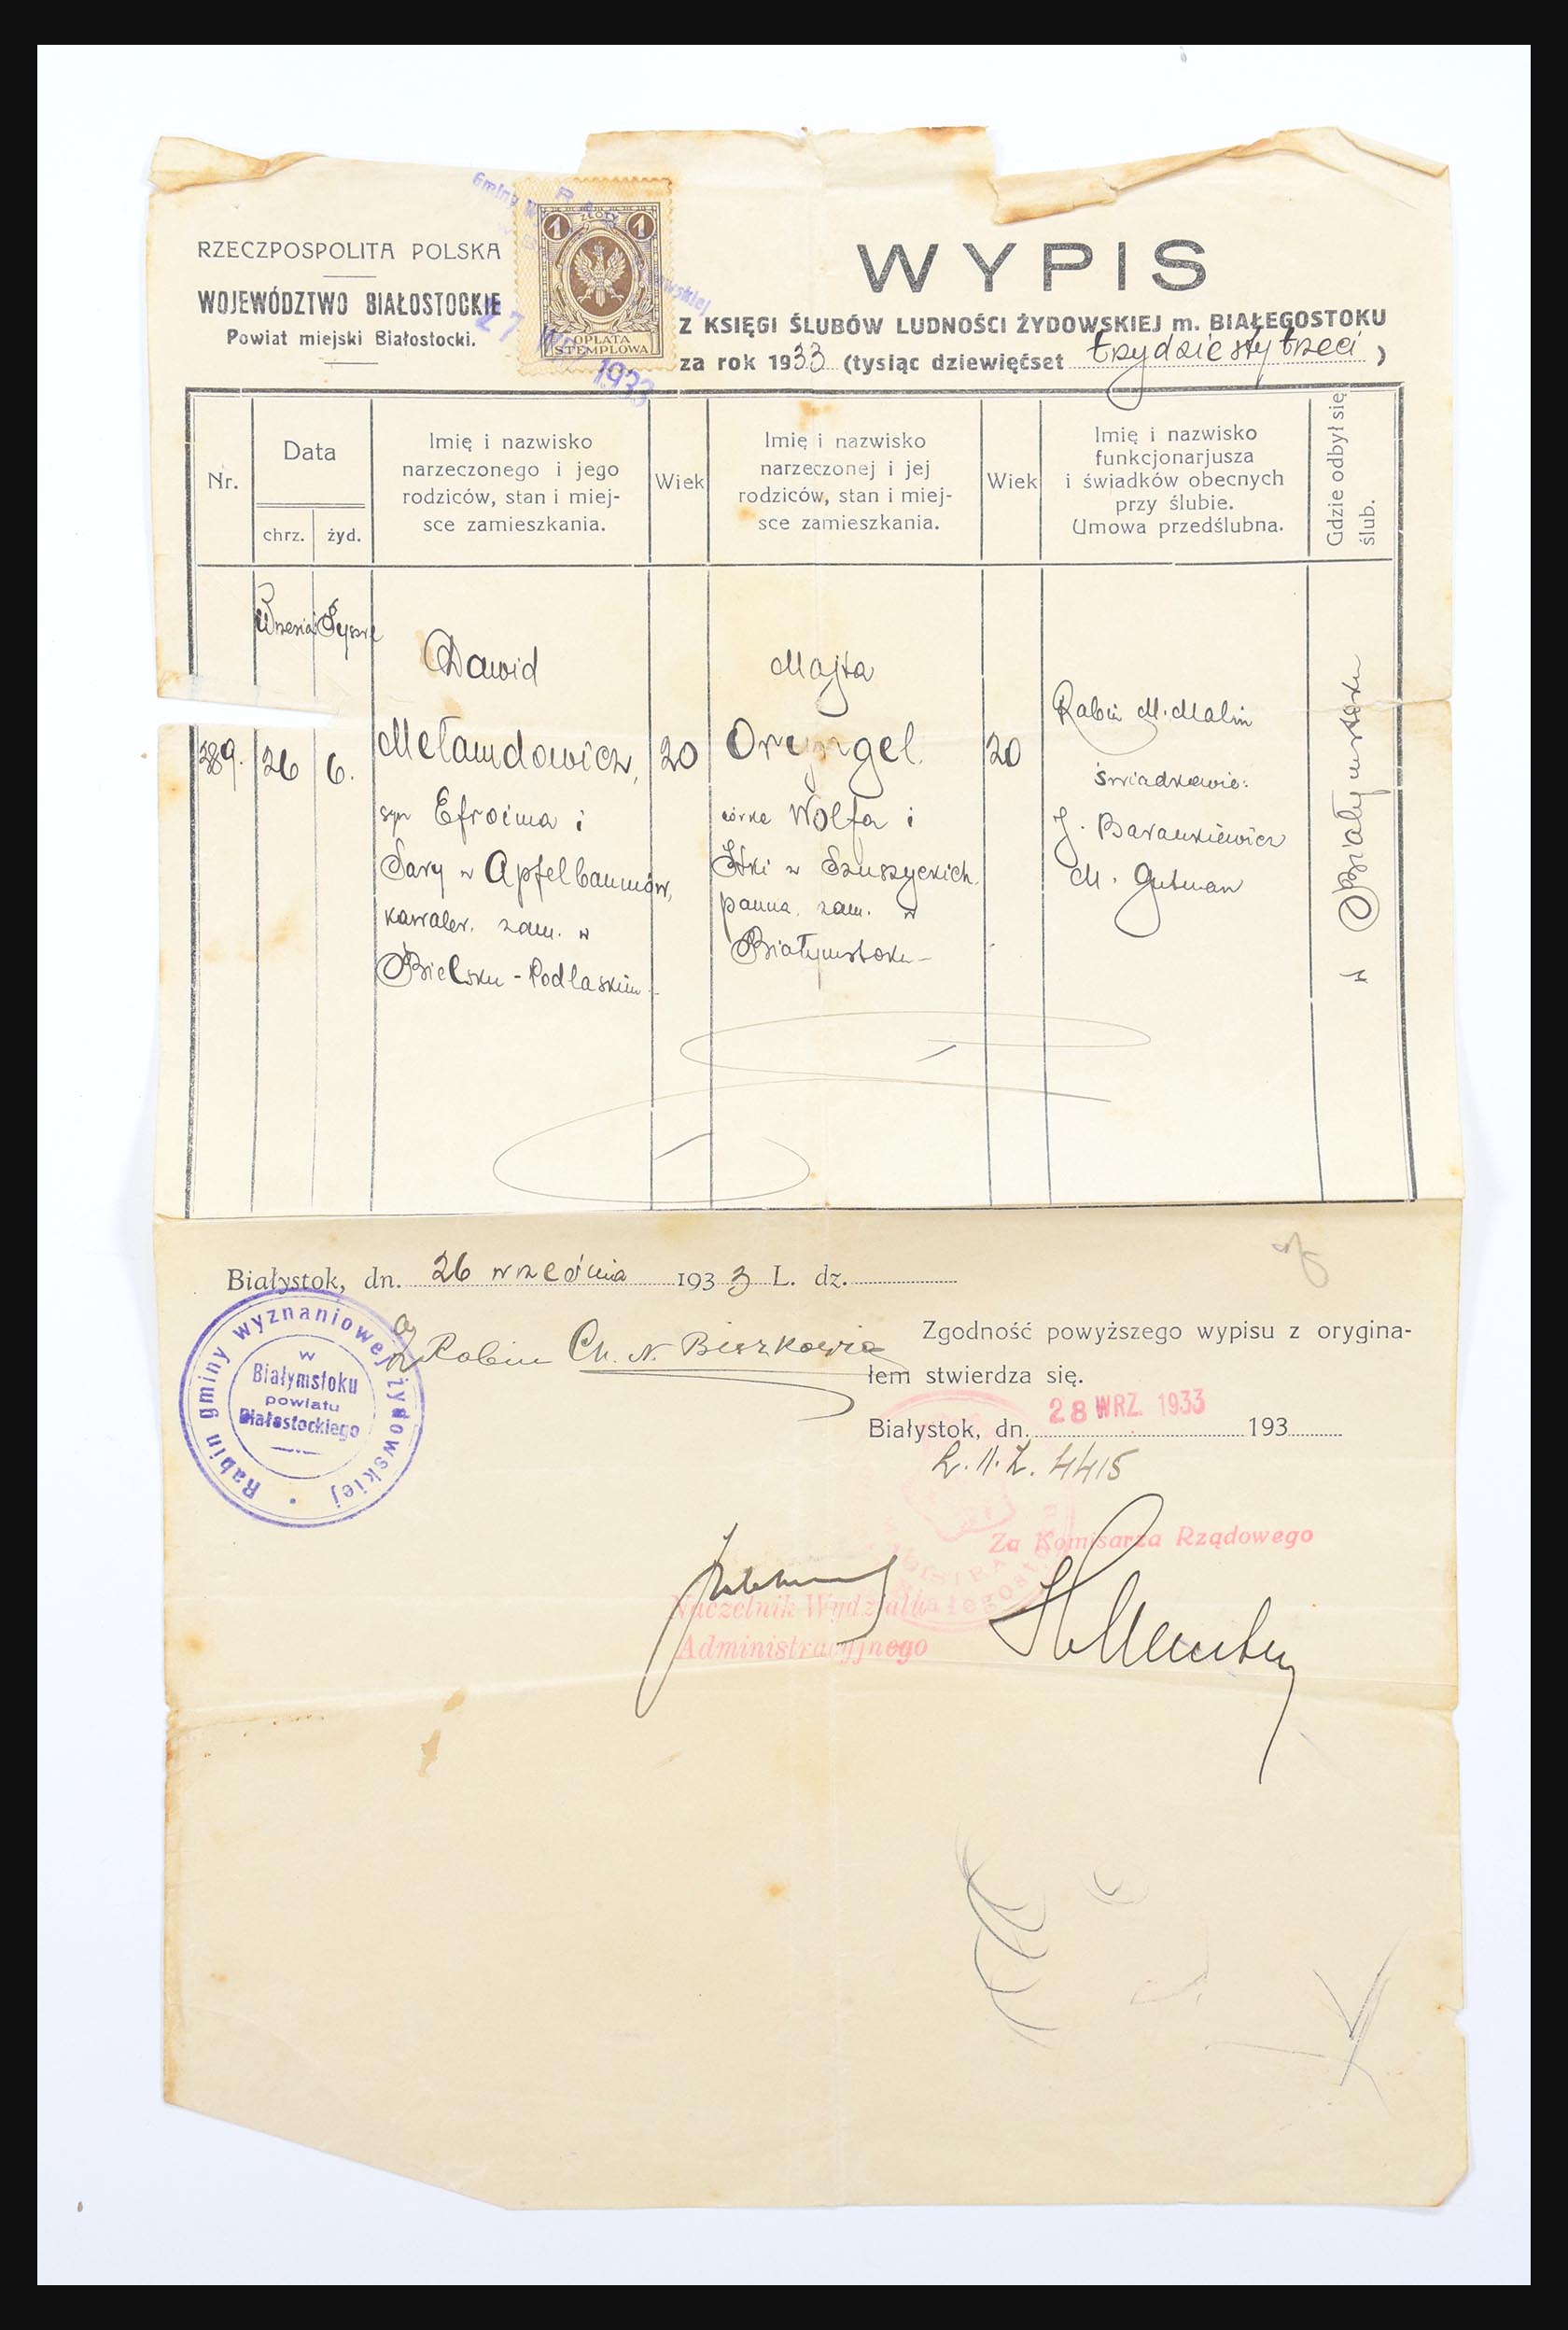 RZECZPOSPOLITA POLSKA
WOJEWÓDZTWO BIAŁOSTOCKIE
Powiat miejski Białostocki.
1 ZŁOTY 1
OPŁATA
STEMPLOWA
27 WRZ 1933
WYPIS
Z KSIĘGI ŚLUBÓW LUDNOŚCI ŻYDOWSKIEJ m. BIAŁEGOSTOKU
za rok 1933 (tysiąc dziewięćset trzydziesty trzeci)
Nr.
Data
chrz. żyd.
Imię i nazwisko
narzeczonego i jego
rodziców, stan i miej-
sce zamieszkania.
Wiek
Imię i nazwisko
narzeczonej i jej
rodziców, stan i miej-
sce zamieszkania.
Wiek
Imię i nazwisko
funkcjonarjusza
i świadków obecnych
przy ślubie.
Umowa przedślubna.
Gdzie odbył się
ślub.
389.
Wrzesia
26
Tyszre
6.
Dawid
Mełamdowicz,
syn Efroima i
Sary z Apfelbaumów,
kawaler, zam. w
Bielsku-Podlaskim
20
Majta
Oryngel
córka Wolfa i
Itki z Szuszyckich
panna, zam. w
Białymstoku
20
Rabin M. Malin
świadkowie:
J. Barankiewicz
M. Gutman
w Białymstoku
Białystok, dn. 26 września 1933 L. dz.
Rabin gminy wyznaniowej żydowskiej
w
Białymstoku
powiatu
Białostockiego
Rabin Ch. N.
Zgodność powyższego wypisu z orygina-
łem stwierdza się.
Białystok, dn. 28 WRZ. 1933 193
4415
Za Komisarza Rządowego
Naczelnik Wydziału
Administracyjnego